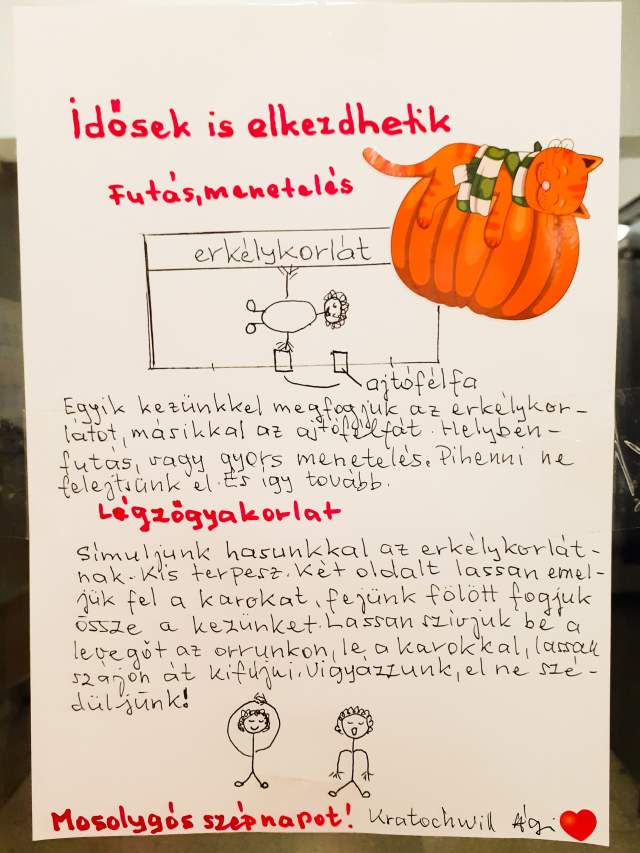 Idősek is elkezdhetik
Futás, menetelés
erkélykorlát
ajtófélfa
Egyik kezünkkel megfogjuk az erkélykor-
látot, másikkal az ajtófélfát. Helyben-
futás, vagy gyors menetelés. Pihenni ne
felejtsünk el. És így tovább.
Légzőgyakorlat
Simuljunk hasunkkal az erkélykorlát-
nak. Kis terpesz. Két oldalt lassan emel-
jük fel a karokat, fejünk fölött fogjuk
össze a kezünket. Lassan szívjuk be a
levegőt az orrunkon, le, a karokkal, lassan
szájon át kifújni. Vigyázzunk, el ne szé-
düljünk!
Mosolygós szép napot! Kratochwill Ági